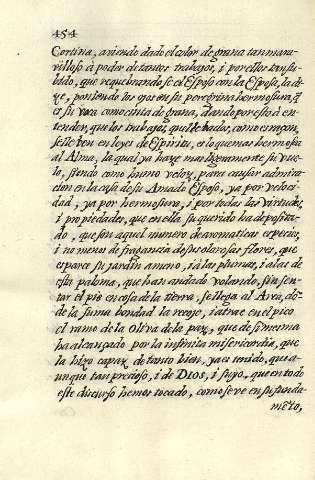 454
Cortina, aviendo dado el color de grana tan mara-
villoso à poder de tantos trabajos, i por ellos tan su-
bido, que requebrandose el Esposo con la Esposa, la di-
ze, poniendo los ojos en su peregrina hermosura, q̃
es su voca como cinta de grana, dando por esto à en-
tender, que los trabajos, qual llevados, como es razon,
se lleven en leyes de Espiritu, es lo que mas hermosea
al Alma, la qual ya haze mas ligeramente su vue-
lo, siendo como humo veloz, para causar admira-
cion en la casa de su Amado Esposo, ya por veloci-
dad, ya por hermosura, i por todas las virtudes,
i propiedades, que en ella su querido ha deposita-
do, que son aquel numero de aromaticas especies,
i no menos de fragancia de sus olorosas flores, que
esparce su jardin ameno, i à las plumas, i alas de
esta paloma, que han andado volando, sin sen-
tar el pie en cosa de la tierra, se llega al Arca, dõ-
de la suma bondad la recoje, i atrae en el pico
el ramo de la Oliva de la paz, que de si mesma
ha alcançado por la infinita misericordia, que
la hizo capaz de tanto bien, ya es tenido, que a-
unque tan precioso, i de DIOS, i suyo, que en todo
este discurso hemos tocado, como se ve en su funda-
mẽto,